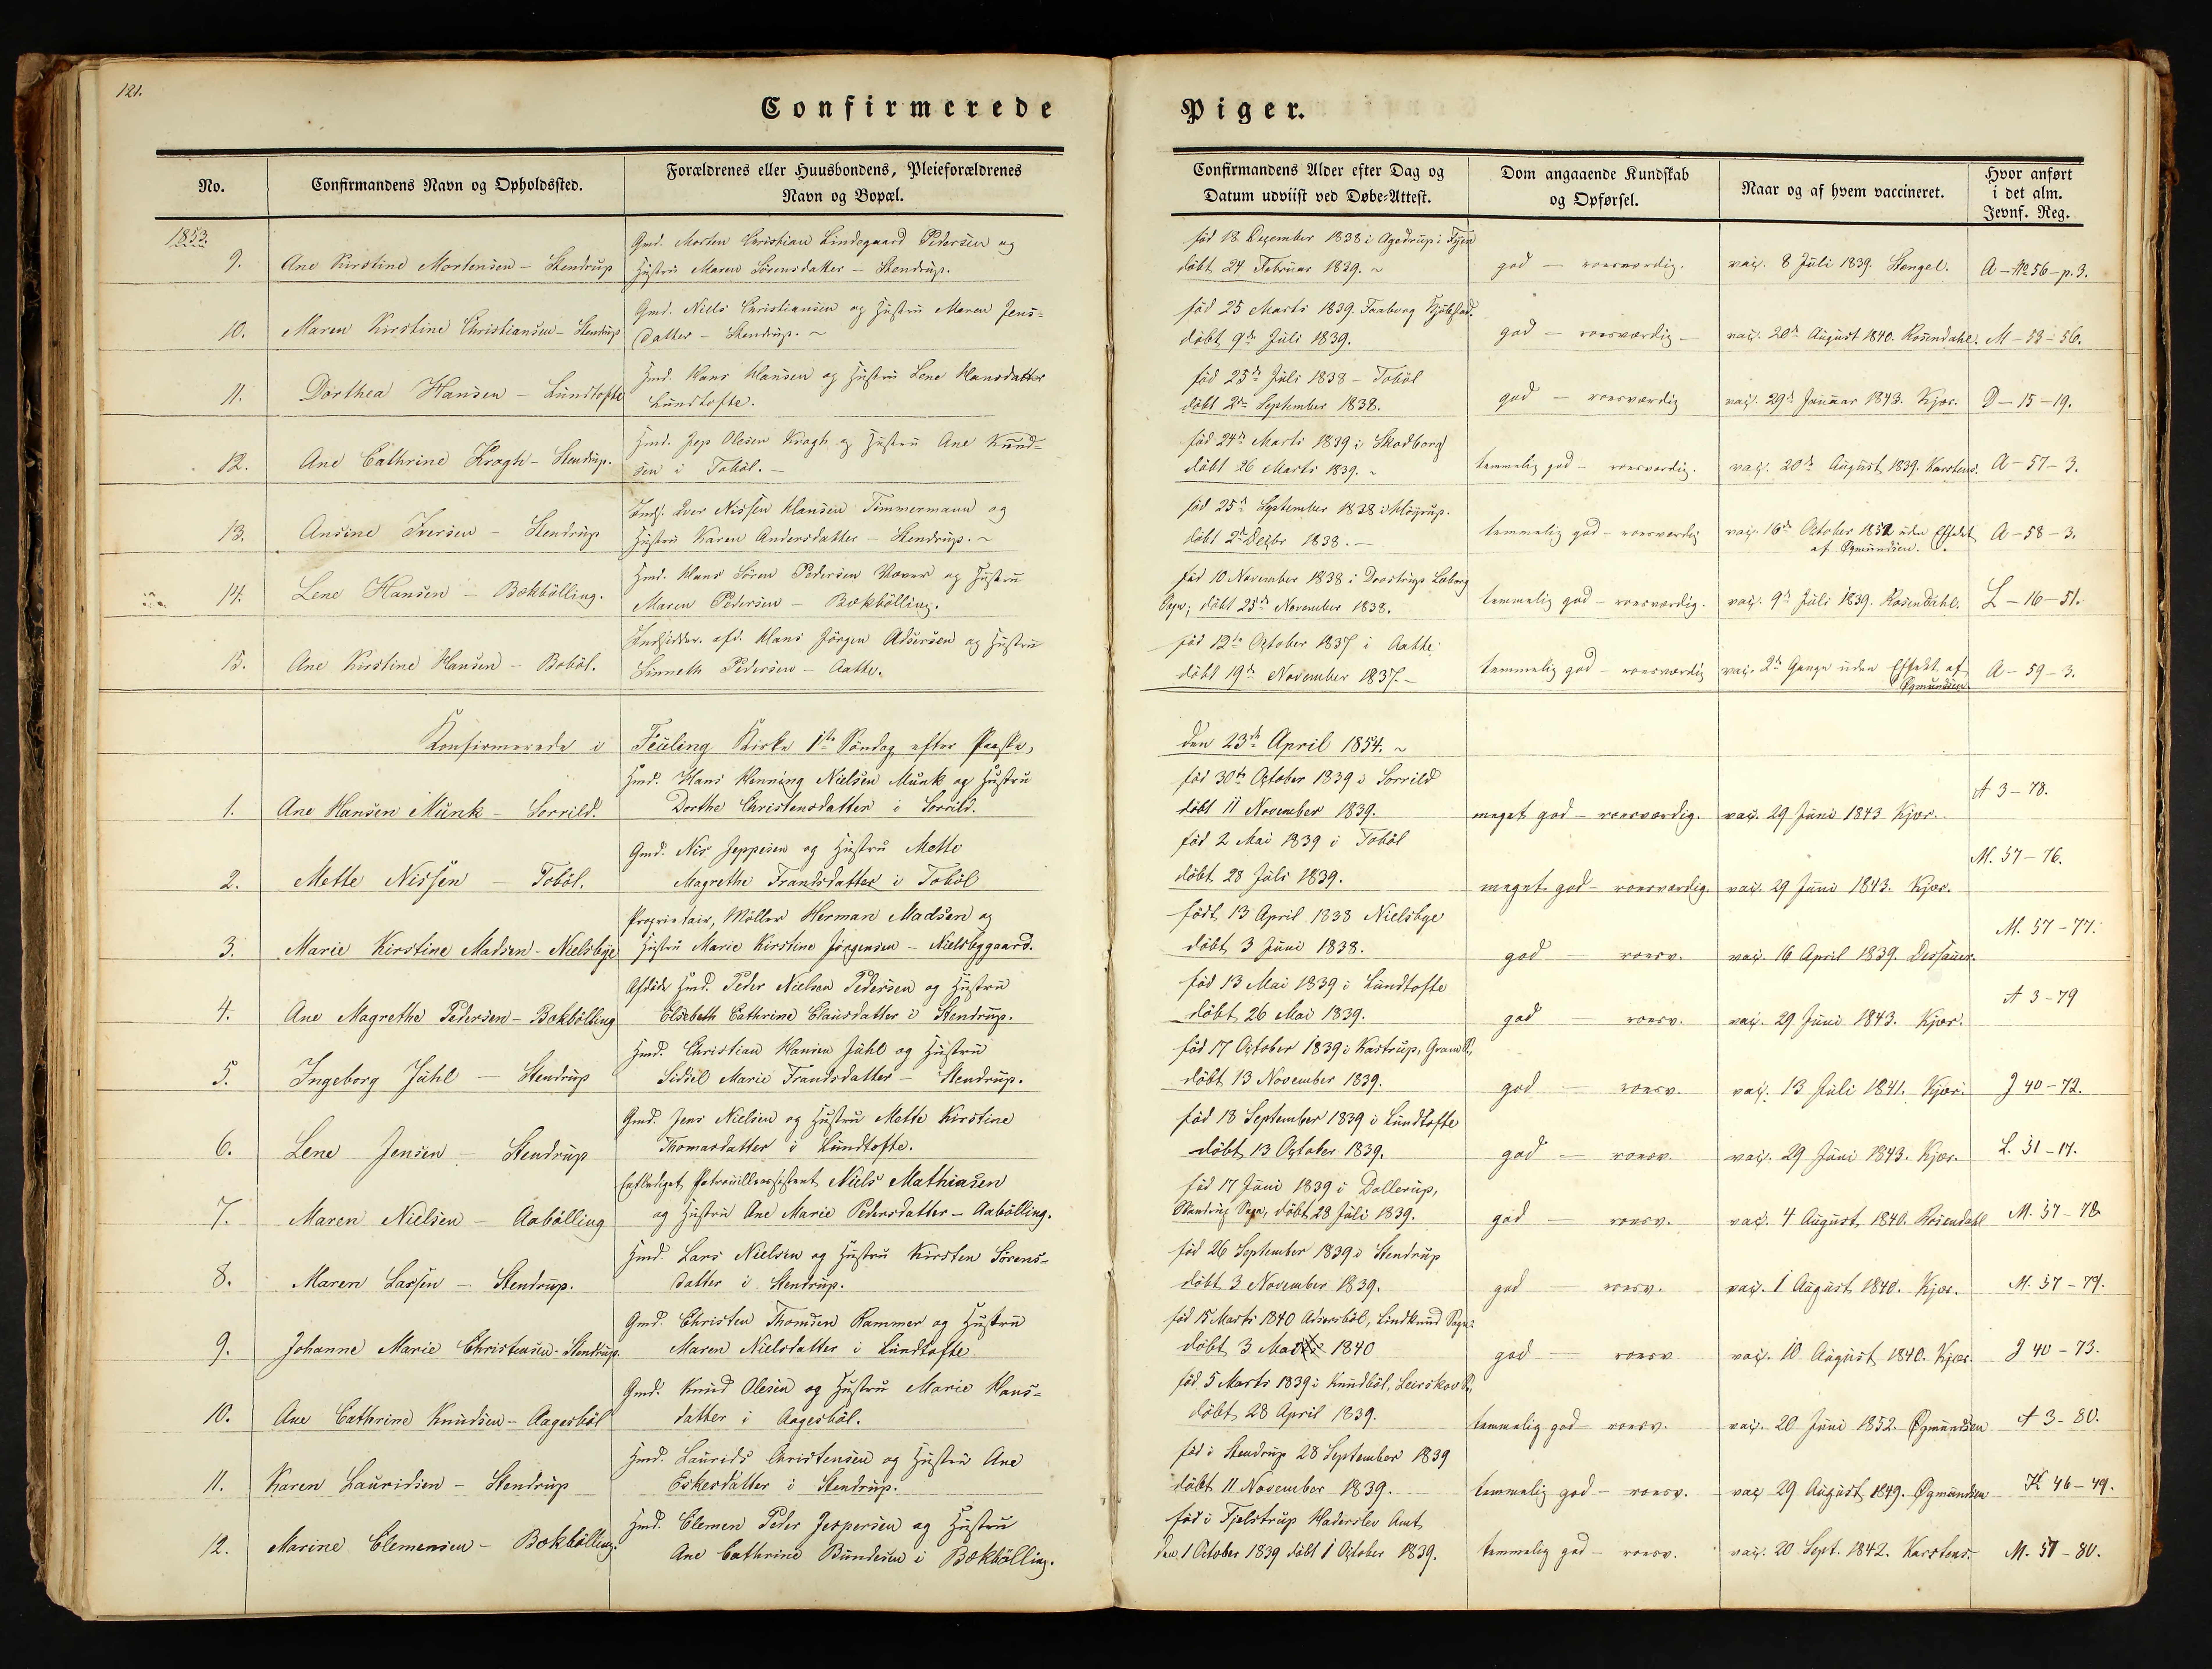 121.
Confirmerede Piger.
No.
Confirmandens Navn og Opholdssted.
Forældrenes eller Huusbondens, Pleieforældrenes
Navn og Bopæl.
Confirmandens Alder efter Dag og
Datum udviist ved Døbe-Attest.
Dom angaaende Kundskab
og Opførsel.
Naar og af hvem vaccineret.
Hvor anført
i det alm.
Jevnf. Reg.
1853.
9. Ane Kirstine Mortensen - Stendrup
Gmd. Morten Christian Lindegaard Pedersen og
Hustru Maren Sørensdatter - Stendrup.
föd 18 December 1838 i Agedrup i Fyen
döbt 24 Februar 1839.
god - roesværdig.
vac. 8 Juli 1839. Stengel.
A - No 56 - p. 3.
10. Maren Kirstine Christiansen - Stendrup
Gmd. Niels Christiansen og Hustru Maren Jens-
datter - Stendrup.
föd 25 Marts 1839. Faaborg Kjöbstad.
döbt 9de Juli 1839.
god - roesværdig -
vac. 20de August 1840. Rosendahl.
M - 53 - 56.
11. Dorthea Hansen - Lundtofte
Hmd. Hans Hansen og Hustru Lene Hansdatter
Lundtofte.
föd 25de Juli 1838 - Toböl
döbt 2den September 1838.
god - roesværdig
vac. 29de Januar 1843. Kjær.
D - 15 - 19.
12. Ane Cathrine Kragh - Stendrup.
Hmd. Jep Olesen Kragh og Hustru Ane Knud-
sen i Toböl. -
föd 24de Marts 1839 i Skodborg
döbt 26 Marts 1839.
temmelig god - roesværdig.
vac. 20de August 1839. Karstens.
A - 57 - 3.
13. Ansine Iversen - Stendrup
Inds. Iver Nissen Hansen Timmermann og
Hustru Karen Andersdatter - Stendrup.
föd 25de September 1838 i Höirup.
döbt 2den Decbr 1838. -
temmelig god - roesværdig
vac. 16de October 1852 uden Effect
af Øgmundsen.
A - 58 - 3.
14. Lene Hansen - Bækbölling.
Hmd. Hans Sören Pedersen Væver og Hustru
Maren Pedersen - Bækbölling.
föd 10 November 1838 i Drostrup Læborg
Sogn, döbt 25de November 1838.
temmelig god - roesværdig.
vac. 9de Juli 1839. Rosendahl.
L - 16 - 51.
15. Ane Kirstine Hansen - Boböl.
Indsidder. afd. Hans Jörgen Adsersen og Hustru
Sinneth Pedersen - Aatte.
föd 12te October 1837 i Aatte
döbt 19de November 1837. -
temmelig god - roesværdig
vac. 2de Gange uden Effekt af
Øgmundsen.
A - 59 - 3.
Konfirmerede i Föuling Kirke 1ste Söndag efter Paaske, den 23de April 1854.
1. Ane Hansen Munk - Sorrild.
Hmd. Hans Henning Nielsen Munk og Hustru
Dorthe Christensdatter i Sorrild.
föd 30te October 1839 i Sorrild
döbt 11 November 1839.
meget god - roesværdig.
vac. 29 Juni 1843 Kjær.
A 3 - 78.
2. Mette Nissen - Toböl.
Gmd. Nis Jeppesen og Hustru Mette
Magrethe Frandsdatter i Toböl
föd 2 Mai 1839 i Toböl
döbt 28 Juli 1839.
meget god - roesværdig.
vac. 29 Juni 1843. Kjær.
M. 57 - 76.
3. Marie Kirstine Madsen - Nielsbye
Proprietair, Möller Herman Madsen og
Hustru Marie Kirstine Jörgensen - Nielsbygaard.
födt 13 April 1838 Nielsbye
döbt 3 Juni 1838.
god - roesv.
vac. 16 April 1839. Dessauer.
M. 57 - 77.
4. Ane Magrethe Pedersen - Bækbölling
Afdöde Hmd. Peder Nielsen Pedersen og Hustru
Elsebeth Cathrine Clausdatter i Stendrup.
föd 13 Mai 1839 i Lundtofte
döbt 26 Mai 1839.
god - roesv.
vac. 29 Juni 1843. Kjær.
A 3 - 79
5. Ingeborg Juhl - Stendrup
Hmd. Christian Hansen Juhl og Hustru
Sidsel Marie Frandsdatter - Stendrup.
föd 17 October 1839 i Kastrup, Gram S.,
döbt 13 November 1839.
god - roesv.
vac. 13 Juli 1841. Kjær.
J 40 - 72.
6. Lene Jensen - Stendrup
Gmd. Jens Nielsen og Hustru Mette Kirstine
Thomasdatter i Lundtofte.
föd 18 September 1839 i Lundtofte
döbt 13 October 1839.
god - roesv.
vac. 29 Juni 1843. Kjær.
L. 51 - 17.
7. Maren Nielsen - Aabölling
Entlediget Patrouilleassistent Niels Mathiasen
og Hustru Ane Marie Pedersdatter - Aabölling.
föd 17 Juni 1839 i Dollerup,
Skandrup Sogn, döbt 28 Juli 1839.
god - roesv.
vac. 4 August 1840. Rosendahl
M. 57 - 78
8. Maren Larsen - Stendrup.
Hmd. Lars Nielsen og Hustru Kirsten Sörens-
datter i Stendrup.
föd 26 September 1839 i Stendrup
döbt 3 November 1839.
god - roesv.
vac. 1 August 1840. Kjær.
M. 57 - 79.
9. Johanne Marie Christensen - Stendrup.
Gmd. Christen Thomsen Rammer og Hustru
Maren Nielsdatter i Lundtofte
föd 15 Marts 1840 Adsersböl, Lindknud Sogn:
döbt 3 Mai 1840
god - roesv
vac. 10 August 1840. Kjær.
J 40 - 73.
10. Ane Cathrine Knudsen - Aagesböl
Gmd. Knud Olesen og Hustru Marie Hans-
datter i Aagesböl.
föd 5 Marts 1839 i Knudböl, Leirskov S.,
döbt 28 April 1839.
temmelig god - roesv.
vac. 20 Juni 1852. Øgmundsen
A 3 - 80.
11. Karen Lauridsen - Stendrup
Hmd. Laurids Christensen og Hustru Ane
Eskesdatter i Stendrup.
föd i Stendrup 28 September 1839
döbt 11 November 1839.
temmelig god - roesv.
vac 29 August 1849. Øgmundsen
K 46 - 49.
12. Marine Clemensen - Bækbölling.
Hmd. Clemen Peder Jespersen og Hustru
Ane Cathrine Bundesen i Bækbölling.
föd i Fjelstrup Haderslev Amt,
den 1 October 1839 döbt 1 October 1839.
temmelig god - roesv.
vac. 20 Sept. 1842. Karstens.
M. 57 - 80.